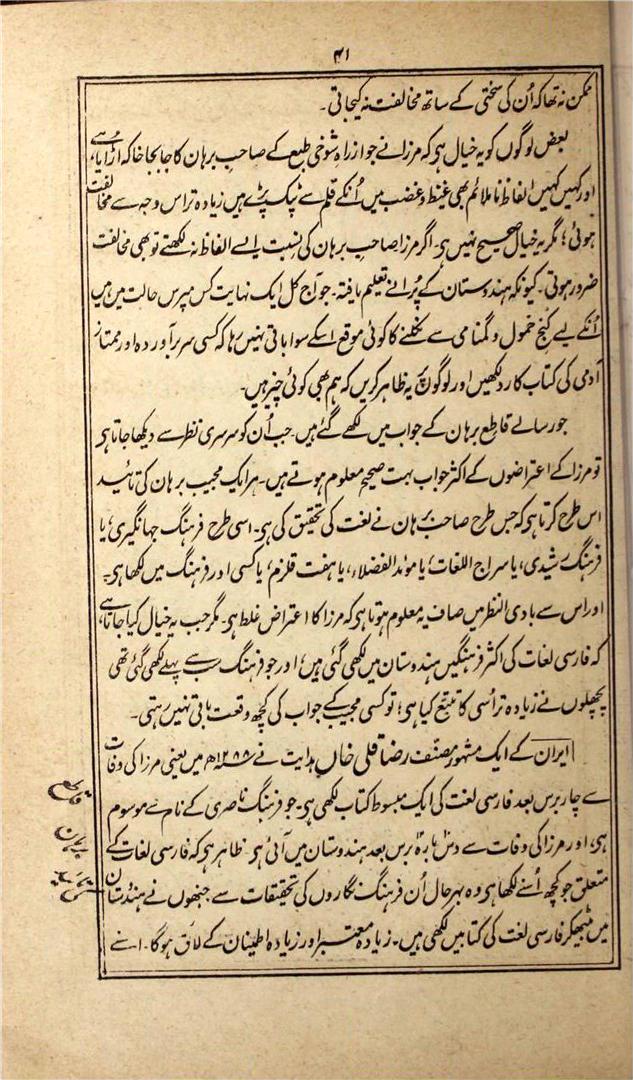 ۴۱
ممکن نہ تھا کہ اُن کی سختی کے ساتھ مخالفت نہ کیجاتی۔
بعض لوگوں کو یہ خیال ہی کہ مرزا نے جو ازراہ شوخی طبع کے صاحب برہان کا جابجا خاکہ اُڑایا ہے،
اور کہیں کہیں الفاظ ناملائم بھی غیظ و غضب میں اُنکے قلم سے ٹپک پڑے ہیں زیادہ تر اس وجہ سے مخالفت
ہوئی؛ مگر یہ خیال صحیح نہیں ہی۔ اگر مرزا صاحبِ برہان کی نسبت ایسے الفاظ نہ لکھتے تو بھی مخالفت
ضرور ہوتی۔ کیونکہ ہندوستان کے پُرانے تعلیم یافتہ۔ جو آج کل ایک نہایت کس مپرس حالت میں ہیں
اُنکے لیے کنج خمول و گمنامی سے نکلنے کا کوئی موقع اسکے سوا باقی نہیں رہا کہ کسی سربرآوردہ اور ممتاز
آدمی کی کتاب کا رد لکھیں اور لوگوں پر یہ ظاہر کریں کہ ہم بھی کوئی چیز ہیں۔
جو رسالے قاطع برہان کے جواب میں لکھے گئے ہیں۔ جب اُن کو سرسری نظر سے دیکھا جاتا ہی
تو مرزا کے اعتراضوں کے اکثر جواب بہت صحیح معلوم ہوتے ہیں۔ ہر ایک مجیب برہان کی تائید
اس طرح کرتا ہی کہ جس طرح صاحب برہان نے لغت کی تحقیق کی ہی۔ اسی طرح فرہنگ جہانگیری، یا
فرہنگ رشیدی، یا سراج اللغات، یا موئد الفضلاء، یا ہفت قلزم، یا کسی اور فرہنگ میں لکھا ہی۔
اور اس سے بادی النظر میں صاف یہ معلوم ہوتا ہی کہ مرزا کا اعتراض غلط ہی۔ مگر جب یہ خیال کیا جاتا ہے،
کہ فارسی لغات کی اکثر فرہنگیں ہندوستان میں لکھی گئی ہیں؛ اور جو فرہنگ سب سے پہلے لکھی گئی تھی
پچھلوں نے زیادہ تر اُسی کا تتبع کیا ہی؛ تو کسی مجیب کے جواب کی کچھ وقعت باقی نہیں رہتی۔
ایران کے ایک مشہور مصنف رضا قلی خاں ہدایت نے ۱۲۸۸ھ میں یعنی مرزا کی وفات
سے چار برس بعد فارسی لغت کی ایک مبسوط کتاب لکھی ہی۔ جو فرہنگ ناصری کے نام سے موسوم
ہی؛ اور مرزا کی وفات سے دس بارہ برس بعد ہندوستان میں آئی ہی۔ ظاہر ہی کہ فارسی لغات کے
متعلق جو کچھ اُسنے لکھا ہی وہ بہرحال اُن فرہنگ نگاروں کی تحقیقات سے جنھوں نے ہندوستان
میں بیٹھیکر فارسی لغت کی کتابیں لکھی ہیں۔ زیادہ معتبر اور زیادہ اطمینان کے لائق ہوگا۔ اسنے